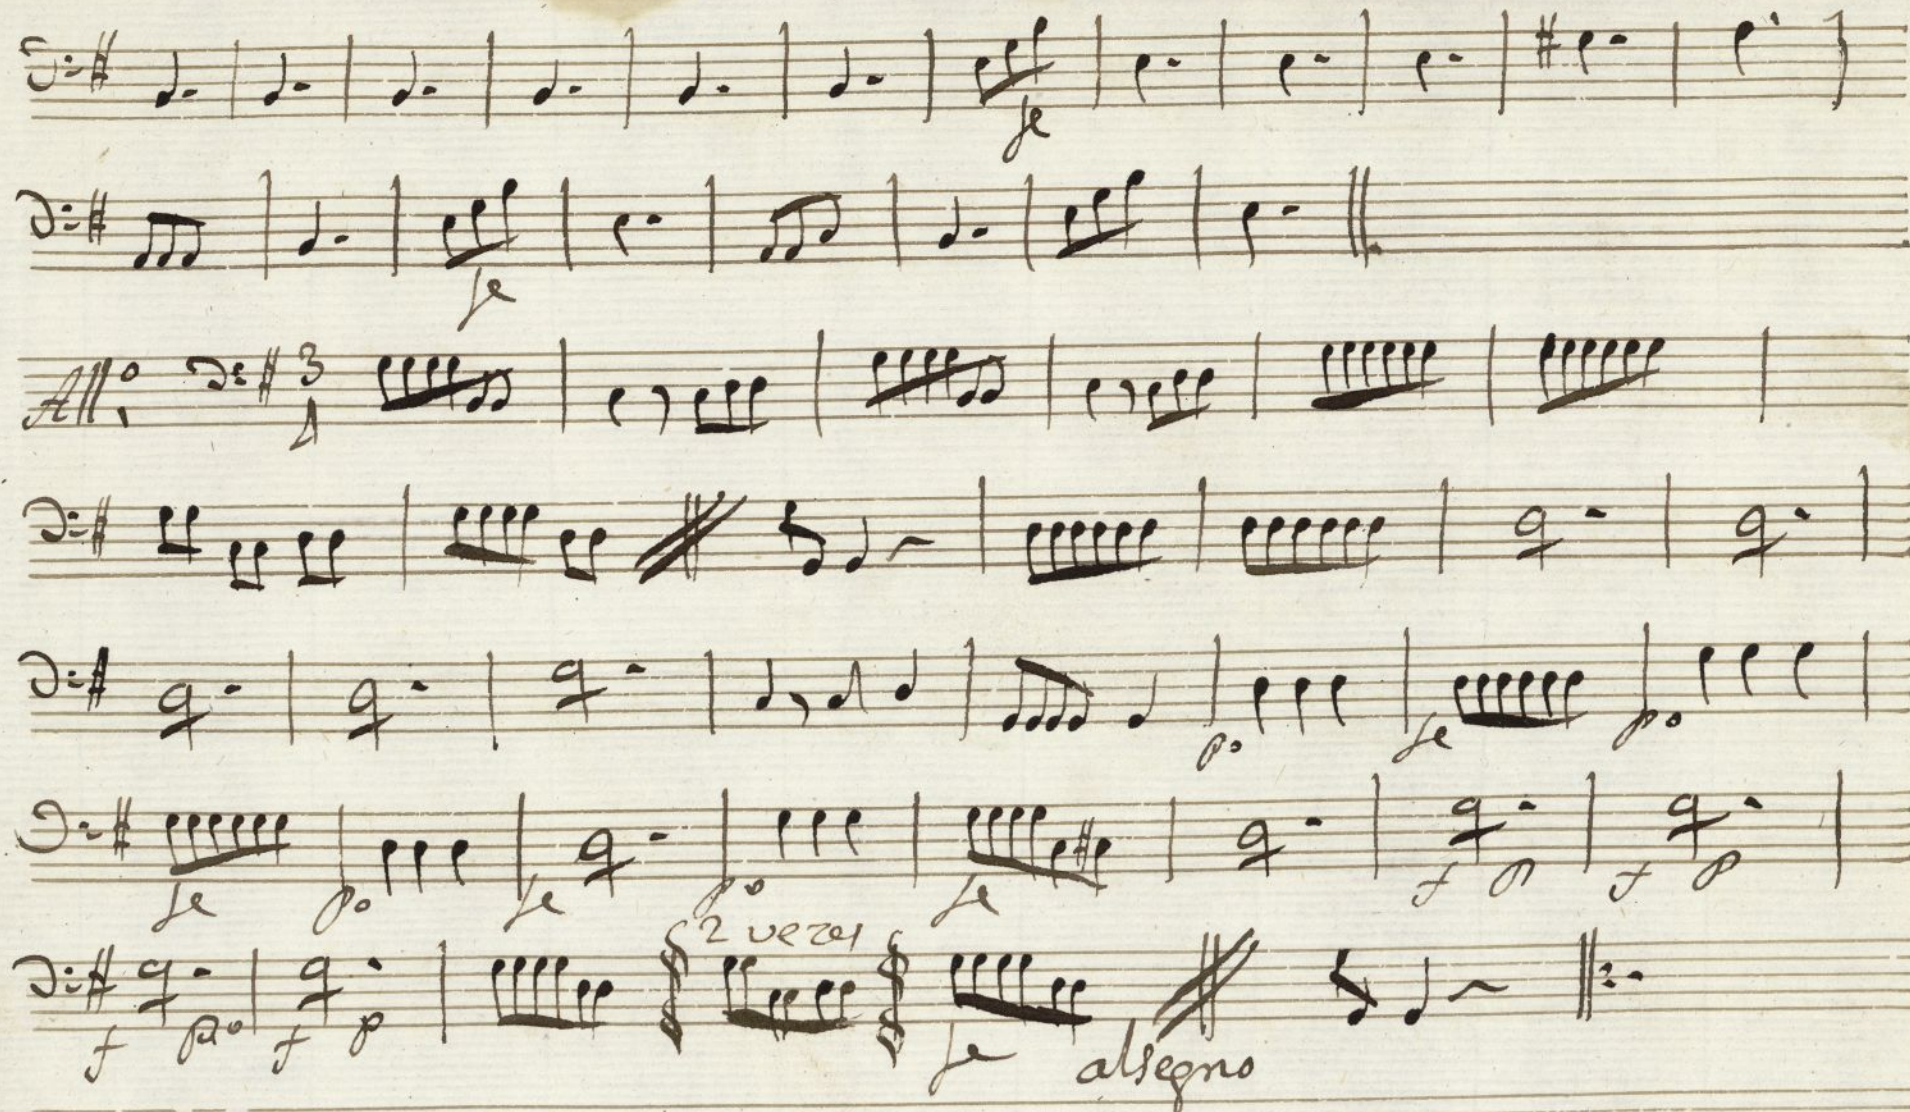 fe
fe
All.º 3 4
p.º fe p.º
fe p.º fe p.º fe f p f p
2 vezes
f p.º f p fe alsegno